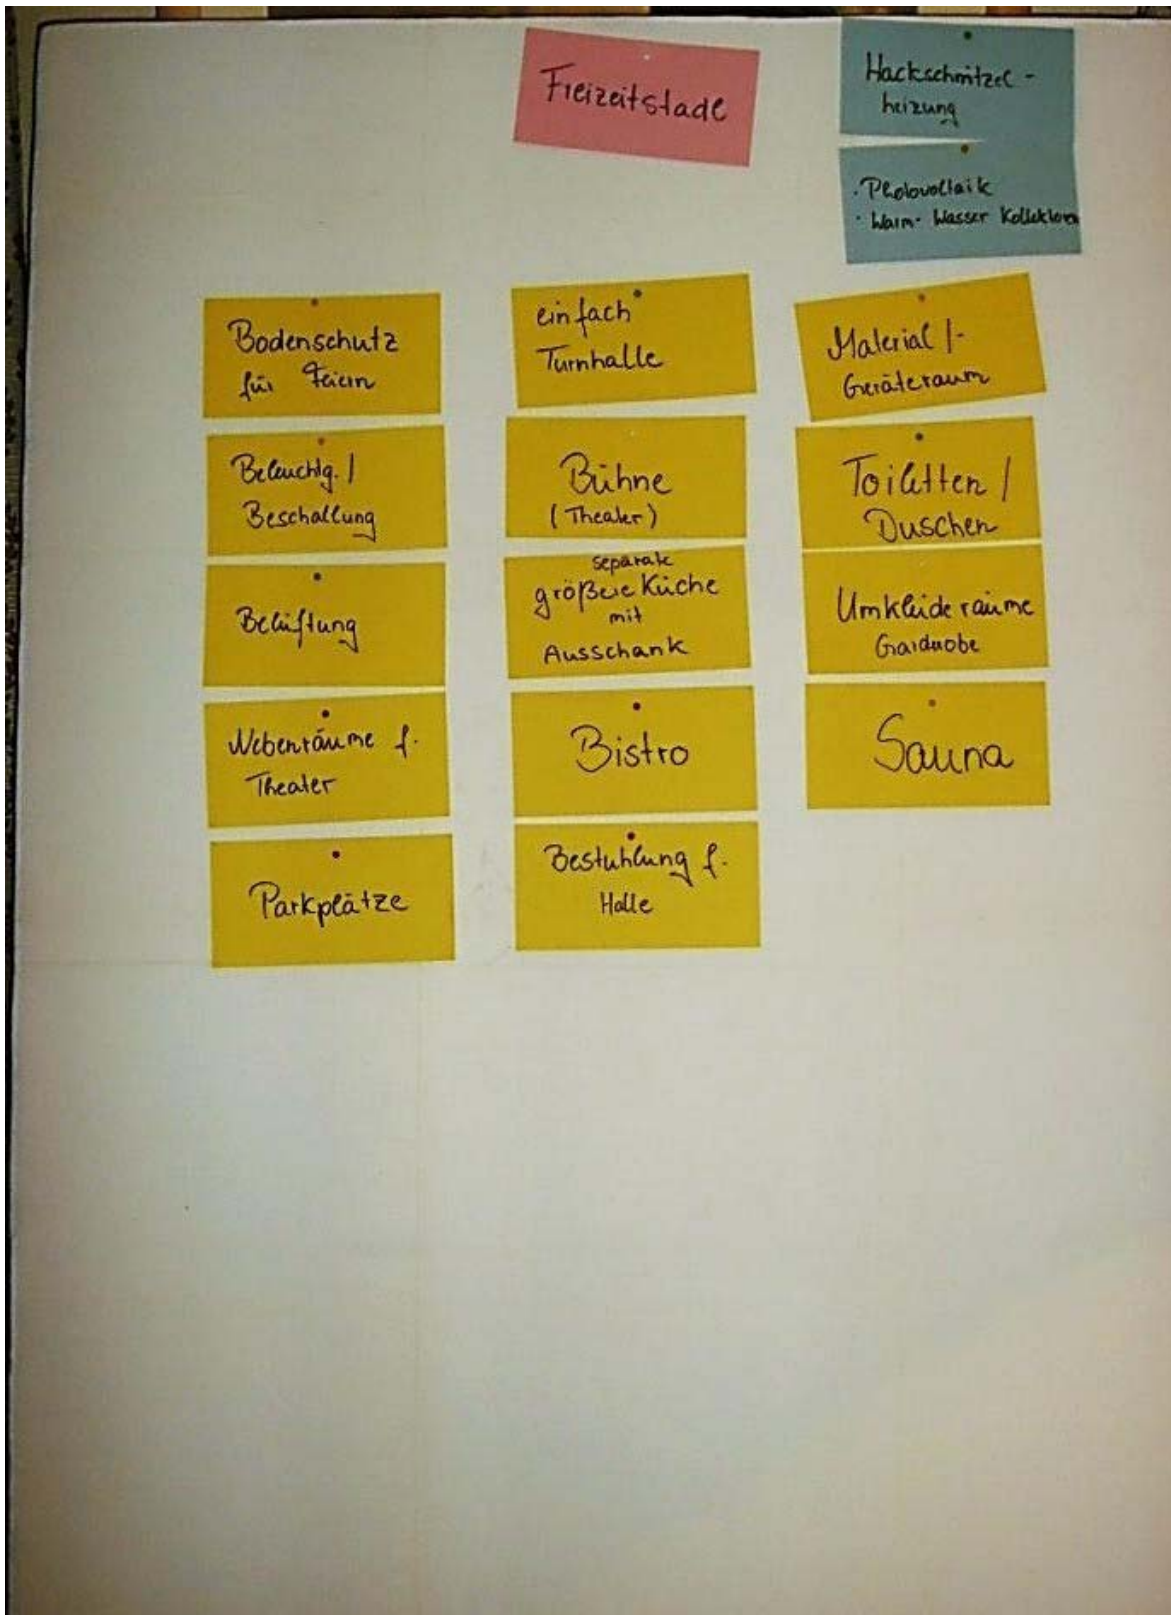 Freizeitstadl
Hackschnitzel-
heizung
· Photovoltaik
· Warm-Wasser Kollektoren
Bodenschutz
für Feiern
Beleuchtg. /
Beschallung
Belüftung
Nebenräume f.
Theater
Parkplätze
einfach
Turnhalle
Bühne
(Theater)
separate
größere Küche
mit
Ausschank
Bistro
Bestuhlung f.
Halle
Material /-
Geräteraum
Toiletten /
Duschen
Umkleideräume
Garderobe
Sauna